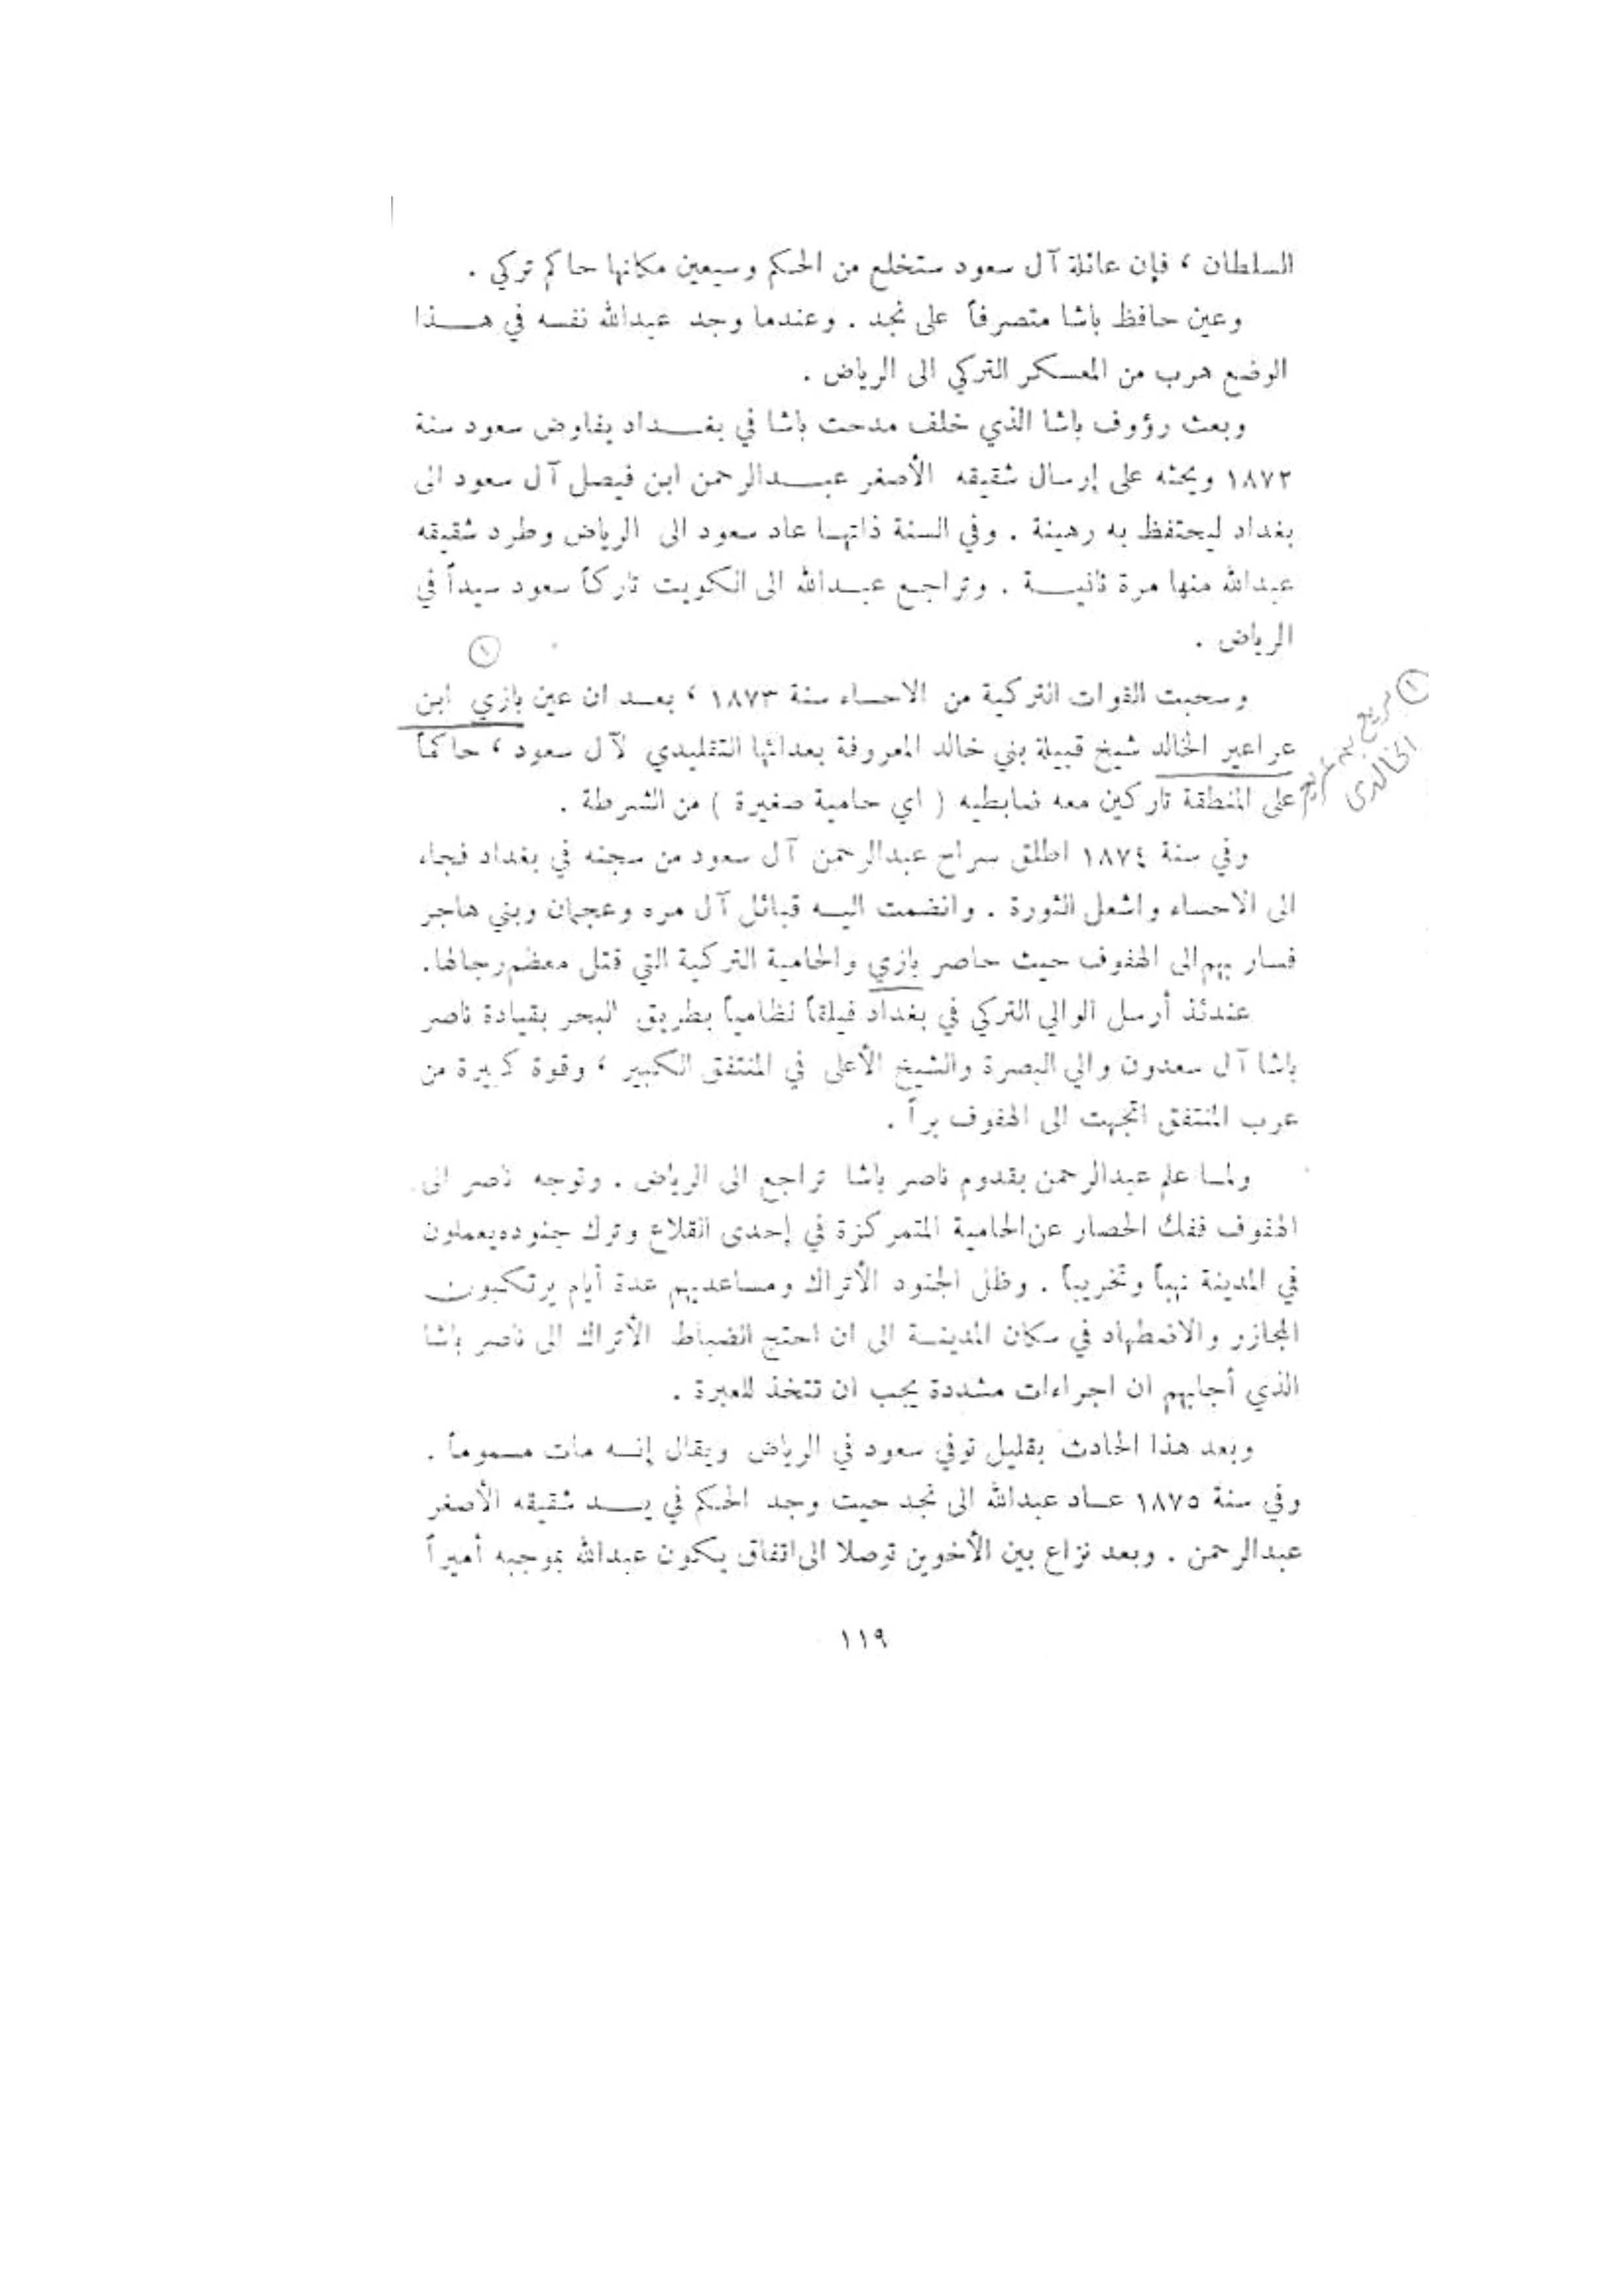 السلطان ، فإن عائلة آل سعود ستخلع من الحكم وسيعين مكانها حاكم تركي .
وعين حافظ باشا متصرفاً على نجد . وعندما وجد عبدالله نفسه في هـــذا
الوضع هرب من المعسكر التركي الى الرياض .
وبعث رؤوف باشا الذي خلف مدحت باشا في بغـــداد يفاوض سعود سنة
١٨٧٢ ويحثه على إرسال شقيقه الأصغر عبـــدالرحمن ابن فيصل آل سعود الى
بغداد ليحتفظ به رهينة . وفي السنة ذاتهـا عاد سعود الى الرياض وطرد شقيقه
عبدالله منها مرة ثانيـــة . وتراجع عبـدالله الى الكويت تاركاً سعود سيداً في
الرياض .
١
وسحبت القوات التركية من الاحساء سنة ١٨٧٣ ، بعـد ان عين بازي ابن
عراعير الخالد شيخ قبيلة بني خالد المعروفة بعدائها التقليدي لآل سعود ، حاكماً
على المنطقة تاركين معه ضابطيه ( اي حامية صغيرة ) من الشرطة .
١
الخالدي
وفي سنة ١٨٧٤ اطلق سراح عبدالرحمن آل سعود من سجنه في بغداد فجاء
الى الاحساء واشعل الثورة . وانضمت اليـه قبائل آل مره وعجمان وبني هاجر
فسار بهم الى الهفوف حيث حاصر بازي والحامية التركية التي قتل معظم رجالها.
عندئذ أرسل الوالي التركي في بغداد فيلقاً نظامياً بطريق البحر بقيادة ناصر
باشا آل سعدون والي البصرة والشيخ الأعلى في المنتفق الكبير ، وقوة كبيرة من
عرب المنتفق اتجهت الى الهفوف براً .
ولمـا علم عبدالرحمن بقدوم ناصر باشا تراجع الى الرياض . وتوجه ناصر الى
الهفوف ففك الحصار عن الحامية المتمركزة في إحدى القلاع وترك جنوده يعملون
في المدينة نهباً وتخريباً . وظل الجنود الأتراك ومساعديهم عدة أيام يرتكبون
المجازر والاضطهاد في سكان المدينــة الى ان احتج الضباط الأتراك الى ناصر باشا
الذي أجابهم ان اجراءات مشددة يجب ان تتخذ للعبرة .
وبعد هذا الحادث بقليل توفي سعود في الرياض ويقال إنـــه مات مسموماً .
وفي سنة ١٨٧٥ عـاد عبدالله الى نجد حيث وجد الحكم في يـــد شقيقه الأصغر
عبدالرحمن . وبعد نزاع بين الأخوين توصلا الى اتفاق يكون عبدالله بموجبه أميراً
١١٩